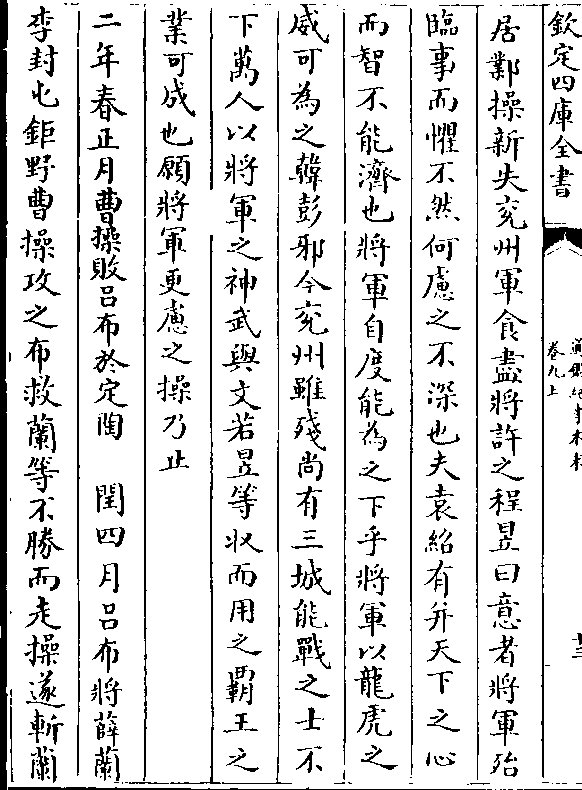 欽定四庫全書
卷九上
居鄴操新失兖州軍食盡將許之程昱曰意者將軍殆
臨事而懼不然何慮之不深也夫袁紹有并天下之心
而智不能濟也將軍自度能為之下乎將軍以龍虎之
威可為之韓彭邪今兖州雖殘尚有三城能戰之士不
下萬人以將軍之神武與文若昱等收而用之霸王之
業可成也願將軍更慮之操乃止
二年春正月曹操敗吕布於定陶　閏四月吕布將薛蘭
李封屯鉅野曹操攻之布救蘭等不勝而走操遂斬蘭